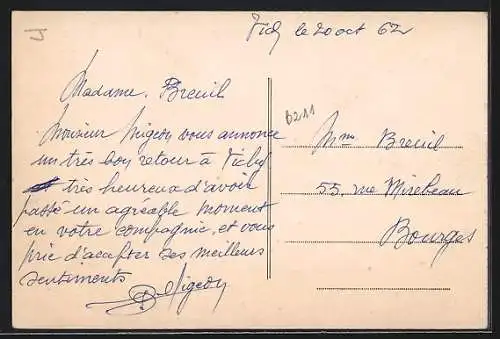 Vichy le 20 oct 62
Madame. Breuil
Monsieur Migeon vous annonce
un très bon retour à Vichy
très heureux d'avoir
passé un agréable moment
en votre compagnie, et vous
prie d'accepter ses meilleurs
sentiments
Migeon
6211
Mme Breuil
55, rue Mirebeau
Bourges